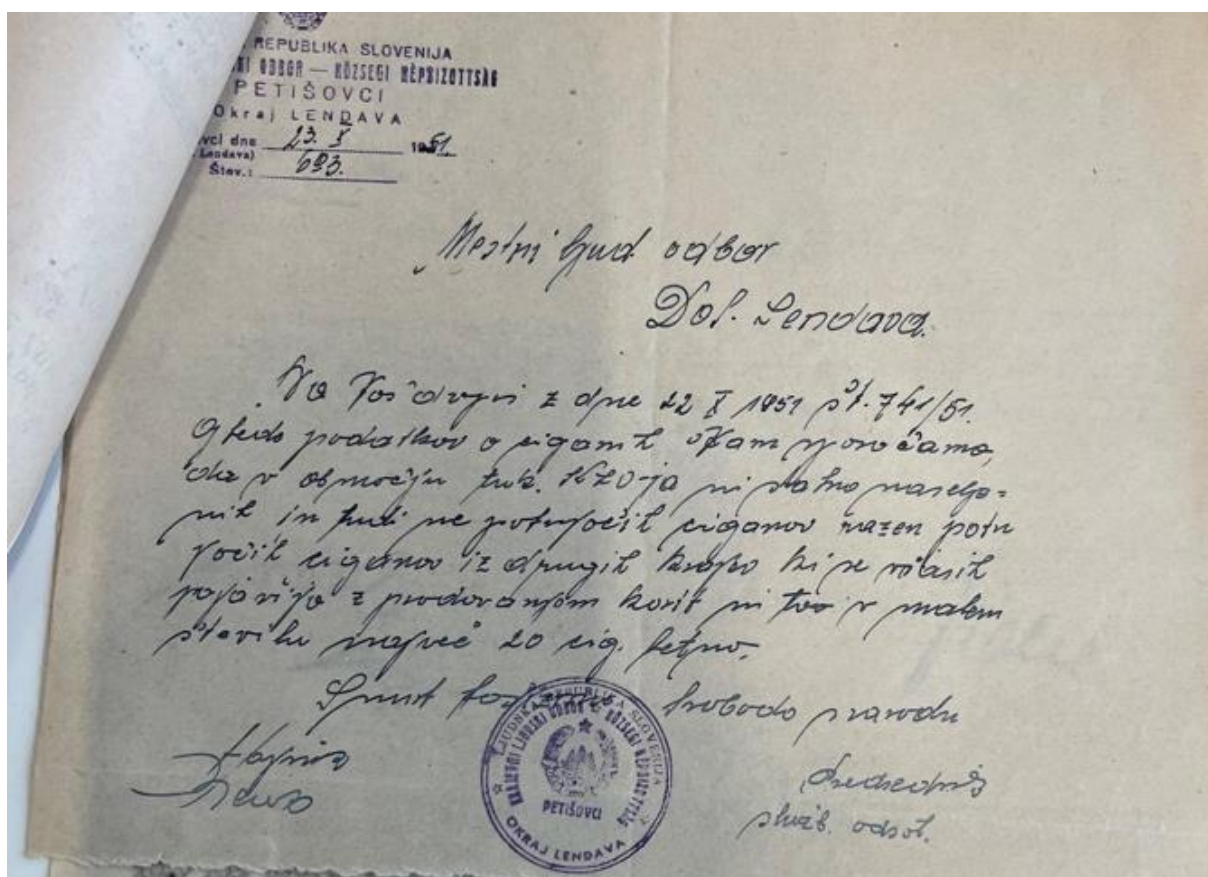 REPUBLIKA SLOVENIJA
ODBOR — KÖZSEGI NÉPBIZOTTSÁG
PETIŠOVCI
Okraj LENDAVA
vci dne 23. X 1951.
Lendava)
Štev.: 693.
Mestni ljud odbor
Dol. Lendava.
Na Vaš dopis z dne 22 X 1951 št. 741/51.
Glede podatkov o ciganih Vam sporočamo,
da v območju tuk. KLO-ja ni stalno naselje=
nih in tudi ne potujočih ciganov razen potu
jočih ciganov iz drugih krajev ki se včasih
pojavijo z prodavanjom korit in to v malem
številu največ 20 cig. letno.
Smrt svobodo narodu
Tajnik
Predsednik
služb. odsot.
LJUDSKA REPUBLIKA SLOVENIJA
KRAJEVNI LJUDSKI ODBOR KÖZSEGI NÉPBIZOTTSÁG
PETIŠOVCI
OKRAJ LENDAVA